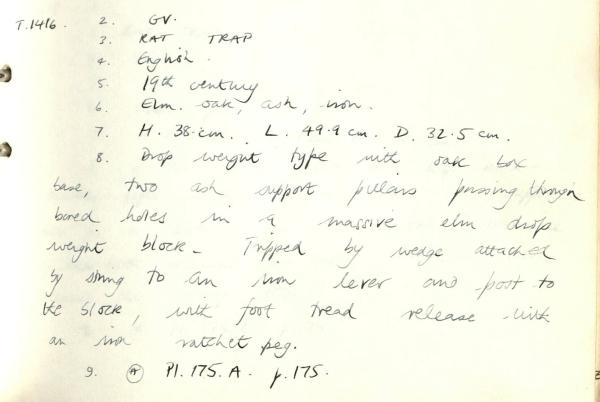 T.1416. 2. GV.
3. RAT TRAP
4. English.
5. 19th century
6. Elm. oak, ash, iron.
7. H. 38.cm. L. 49.9 cm. D. 32.5 cm.
8. Drop weight type with oak box
base, two ash support pillars passing through
bored holes in a massive elm drop
weight block. Tripped by wedge attached
by string to an iron lever and post to
the block, with foot tread release with
an iron ratchet peg.
9. (A) Pl. 175. A. p. 175.